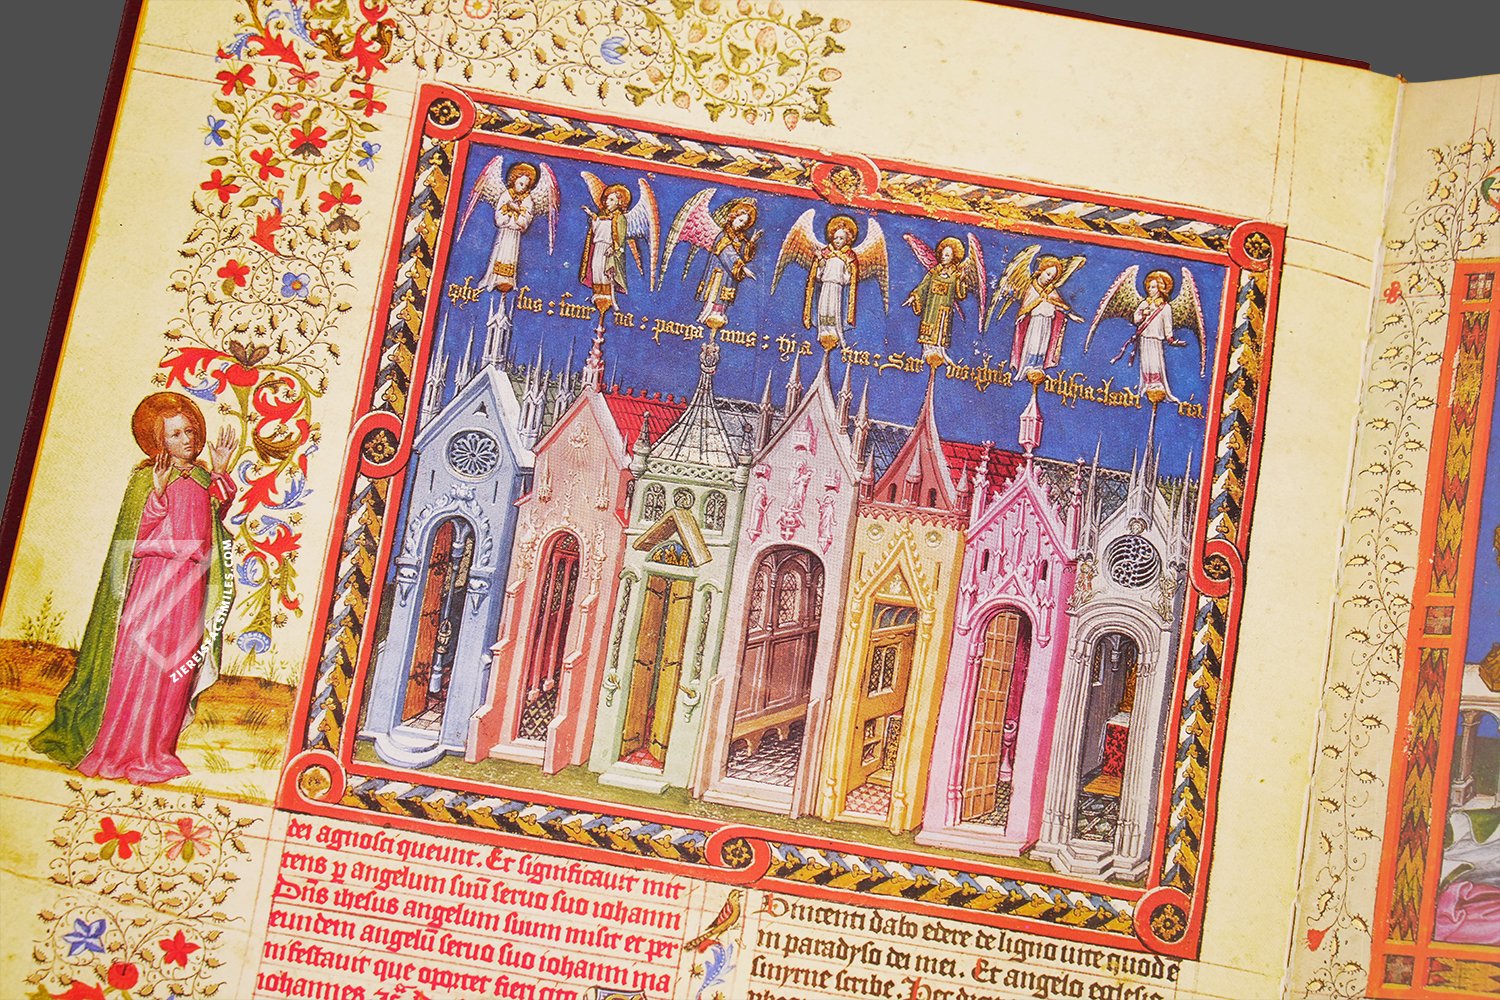 ephe sus : smir na : parga mus : tyia tira : Sar dis : phila delphia : laodi cia
dei agnosci queunt. Et significauit mit
tens p angelum suũ seruo suo iohanni
Dñs ihesus angelum suum misit et per
eundem angelũ seruo suo iohanni ma
nifestauit que oportet fieri cito
iohannes
Vincenti dabo edere de ligno uite quod ẽ
in paradyso dei mei. Et angelo eglesie
smyrne scribe. Hec dicit
ZIEREIS FACSIMILES.COM